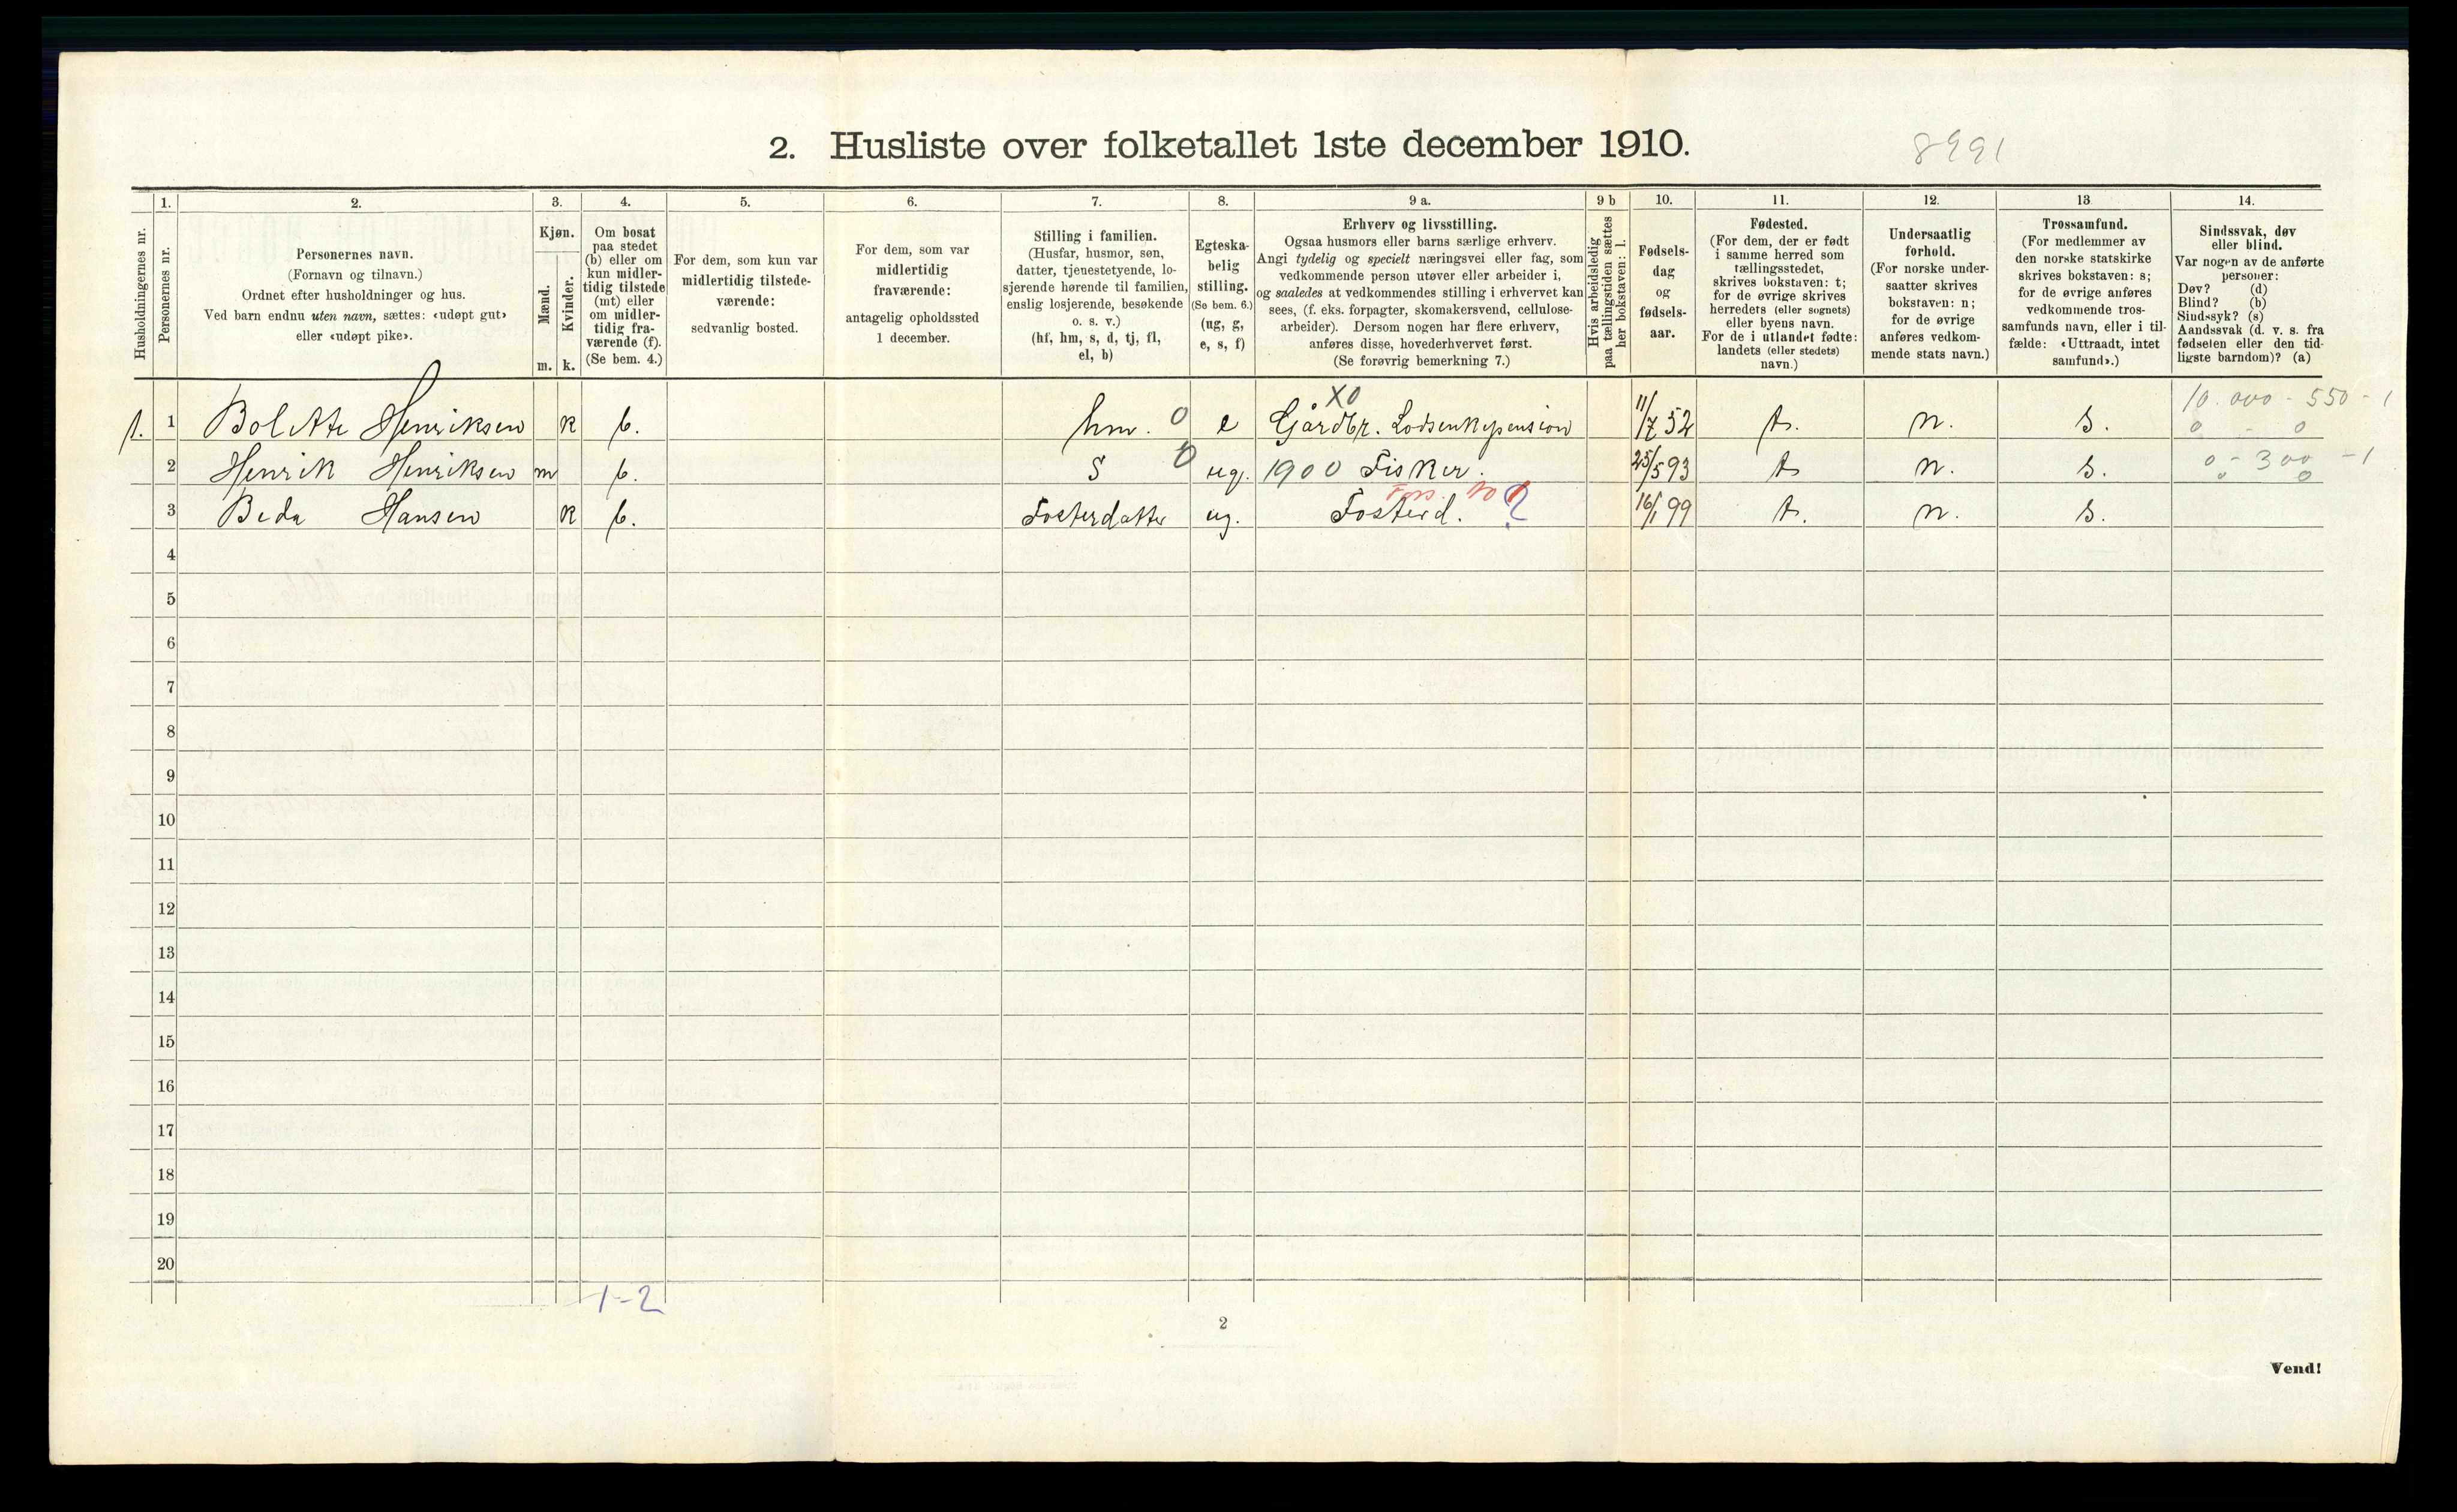 2. Husliste over folketallet 1ste december 1910.
8991
Husholdningernes nr.
1. Personernes nr.
2. Personernes navn.
(Fornavn og tilnavn.)
Ordnet efter husholdninger og hus.
Ved barn endnu uten navn, sættes: «udøpt gut»
eller «udøpt pike».
3. Kjøn.
Mænd. m.
Kvinder. k.
4. Om bosat
paa stedet
(b) eller om
kun midler-
tidig tilstede
(mt) eller
om midler-
tidig fra-
værende (f).
(Se bem. 4.)
5. For dem, som kun var
midlertidig tilstede-
værende:
sedvanlig bosted.
6. For dem, som var
midlertidig
fraværende:
antagelig opholdssted
1 december.
7. Stilling i familien.
(Husfar, husmor, søn,
datter, tjenestetyende, lo-
sjerende hørende til familien,
enslig losjerende, besøkende
o. s. v.)
(hf, hm, s, d, tj, fl,
el, b)
8. Egteska-
belig
stilling.
(Se bem. 6.)
(ug, g,
e, s, f)
9 a. Erhverv og livsstilling.
Ogsaa husmors eller barns særlige erhverv.
Angi tydelig og specielt næringsvei eller fag, som
vedkommende person utøver eller arbeider i,
og saaledes at vedkommendes stilling i erhvervet kan
sees, (f. eks. forpagter, skomakersvend, cellulose-
arbeider). Dersom nogen har flere erhverv,
anføres disse, hovederhvervet først.
(Se forøvrig bemerkning 7.)
9 b Hvis arbeidsledig
paa tællingstiden sættes
her bokstaven: l.
10. Fødsels-
dag
og
fødsels-
aar.
11. Fødested.
(For dem, der er født
i samme herred som
tællingsstedet,
skrives bokstaven: t;
for de øvrige skrives
herredets (eller sognets)
eller byens navn.
For de i utlandet fødte:
landets (eller stedets)
navn.)
12. Undersaatlig
forhold.
(For norske under-
saatter skrives
bokstaven: n;
for de øvrige
anføres vedkom-
mende stats navn.)
13. Trossamfund.
(For medlemmer av
den norske statskirke
skrives bokstaven: s;
for de øvrige anføres
vedkommende tros-
samfunds navn, eller i til-
fælde: «Uttraadt, intet
samfund».)
14. Sindssvak, døv
eller blind.
Var nogen av de anførte
personer:
Døv? (d)
Blind? (b)
Sindssyk? (s)
Aandssvak (d. v. s. fra
fødselen eller den tid-
ligste barndom)? (a)
X0 10.000 - 550 - 1
1. 1 Bolette Henriksen k b. hm. 0 e Gårdbr. 11/7 52 t. n. s. 0 - 0
2 Henrik Henriksen m b. s 0 ug. 1900 Fisker. 25/5 93 t n. s. 0 - 300 - 1
0 0
Fors.
3 Beda Hansen k b. Fosterdatter ug. Fosterd. ? 16/1 99 t. n. s.
4
5
6
7
8
9
10
11
12
13
14
15
16
17
18
19
20
1-2
2
Vend!